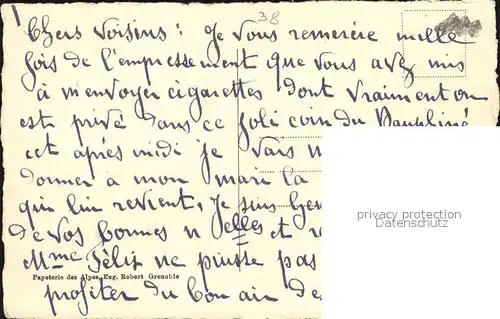 38
Chers Voisins : Je vous remercie mille
fois de l'empressement que vous avez mis
à m'envoyer cigarettes dont vraiment on
est privé dans ce joli coin du Dauphiné
cet après midi je vais
donner à mon mari la
qui lui revient, Je suis
de vos bonnes nelles et
Mme Félix ne puisse pas
Papeterie des Alpes, Eug. Robert Grenoble
profiter du bon air de
privacy protection
Datenschutz